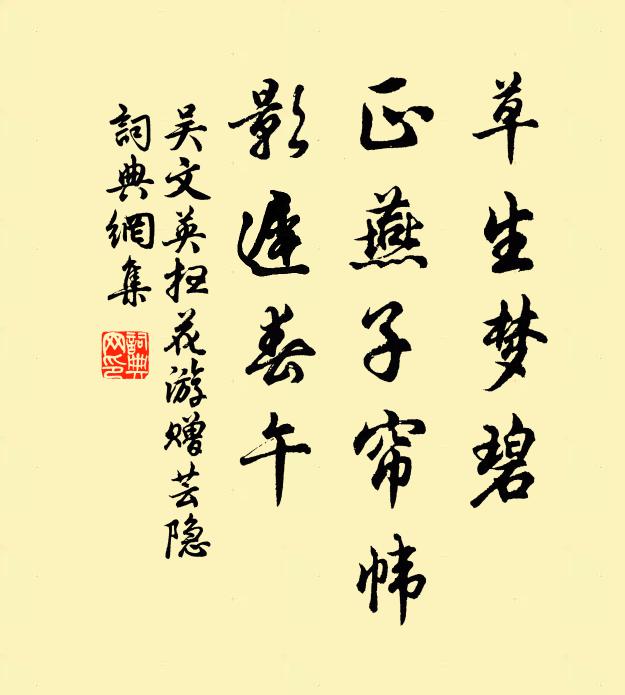 草生梦碧
正燕子帘帏
影遲春午
吴文英扫花游赠芸隐
詞典網集
詞典
网印